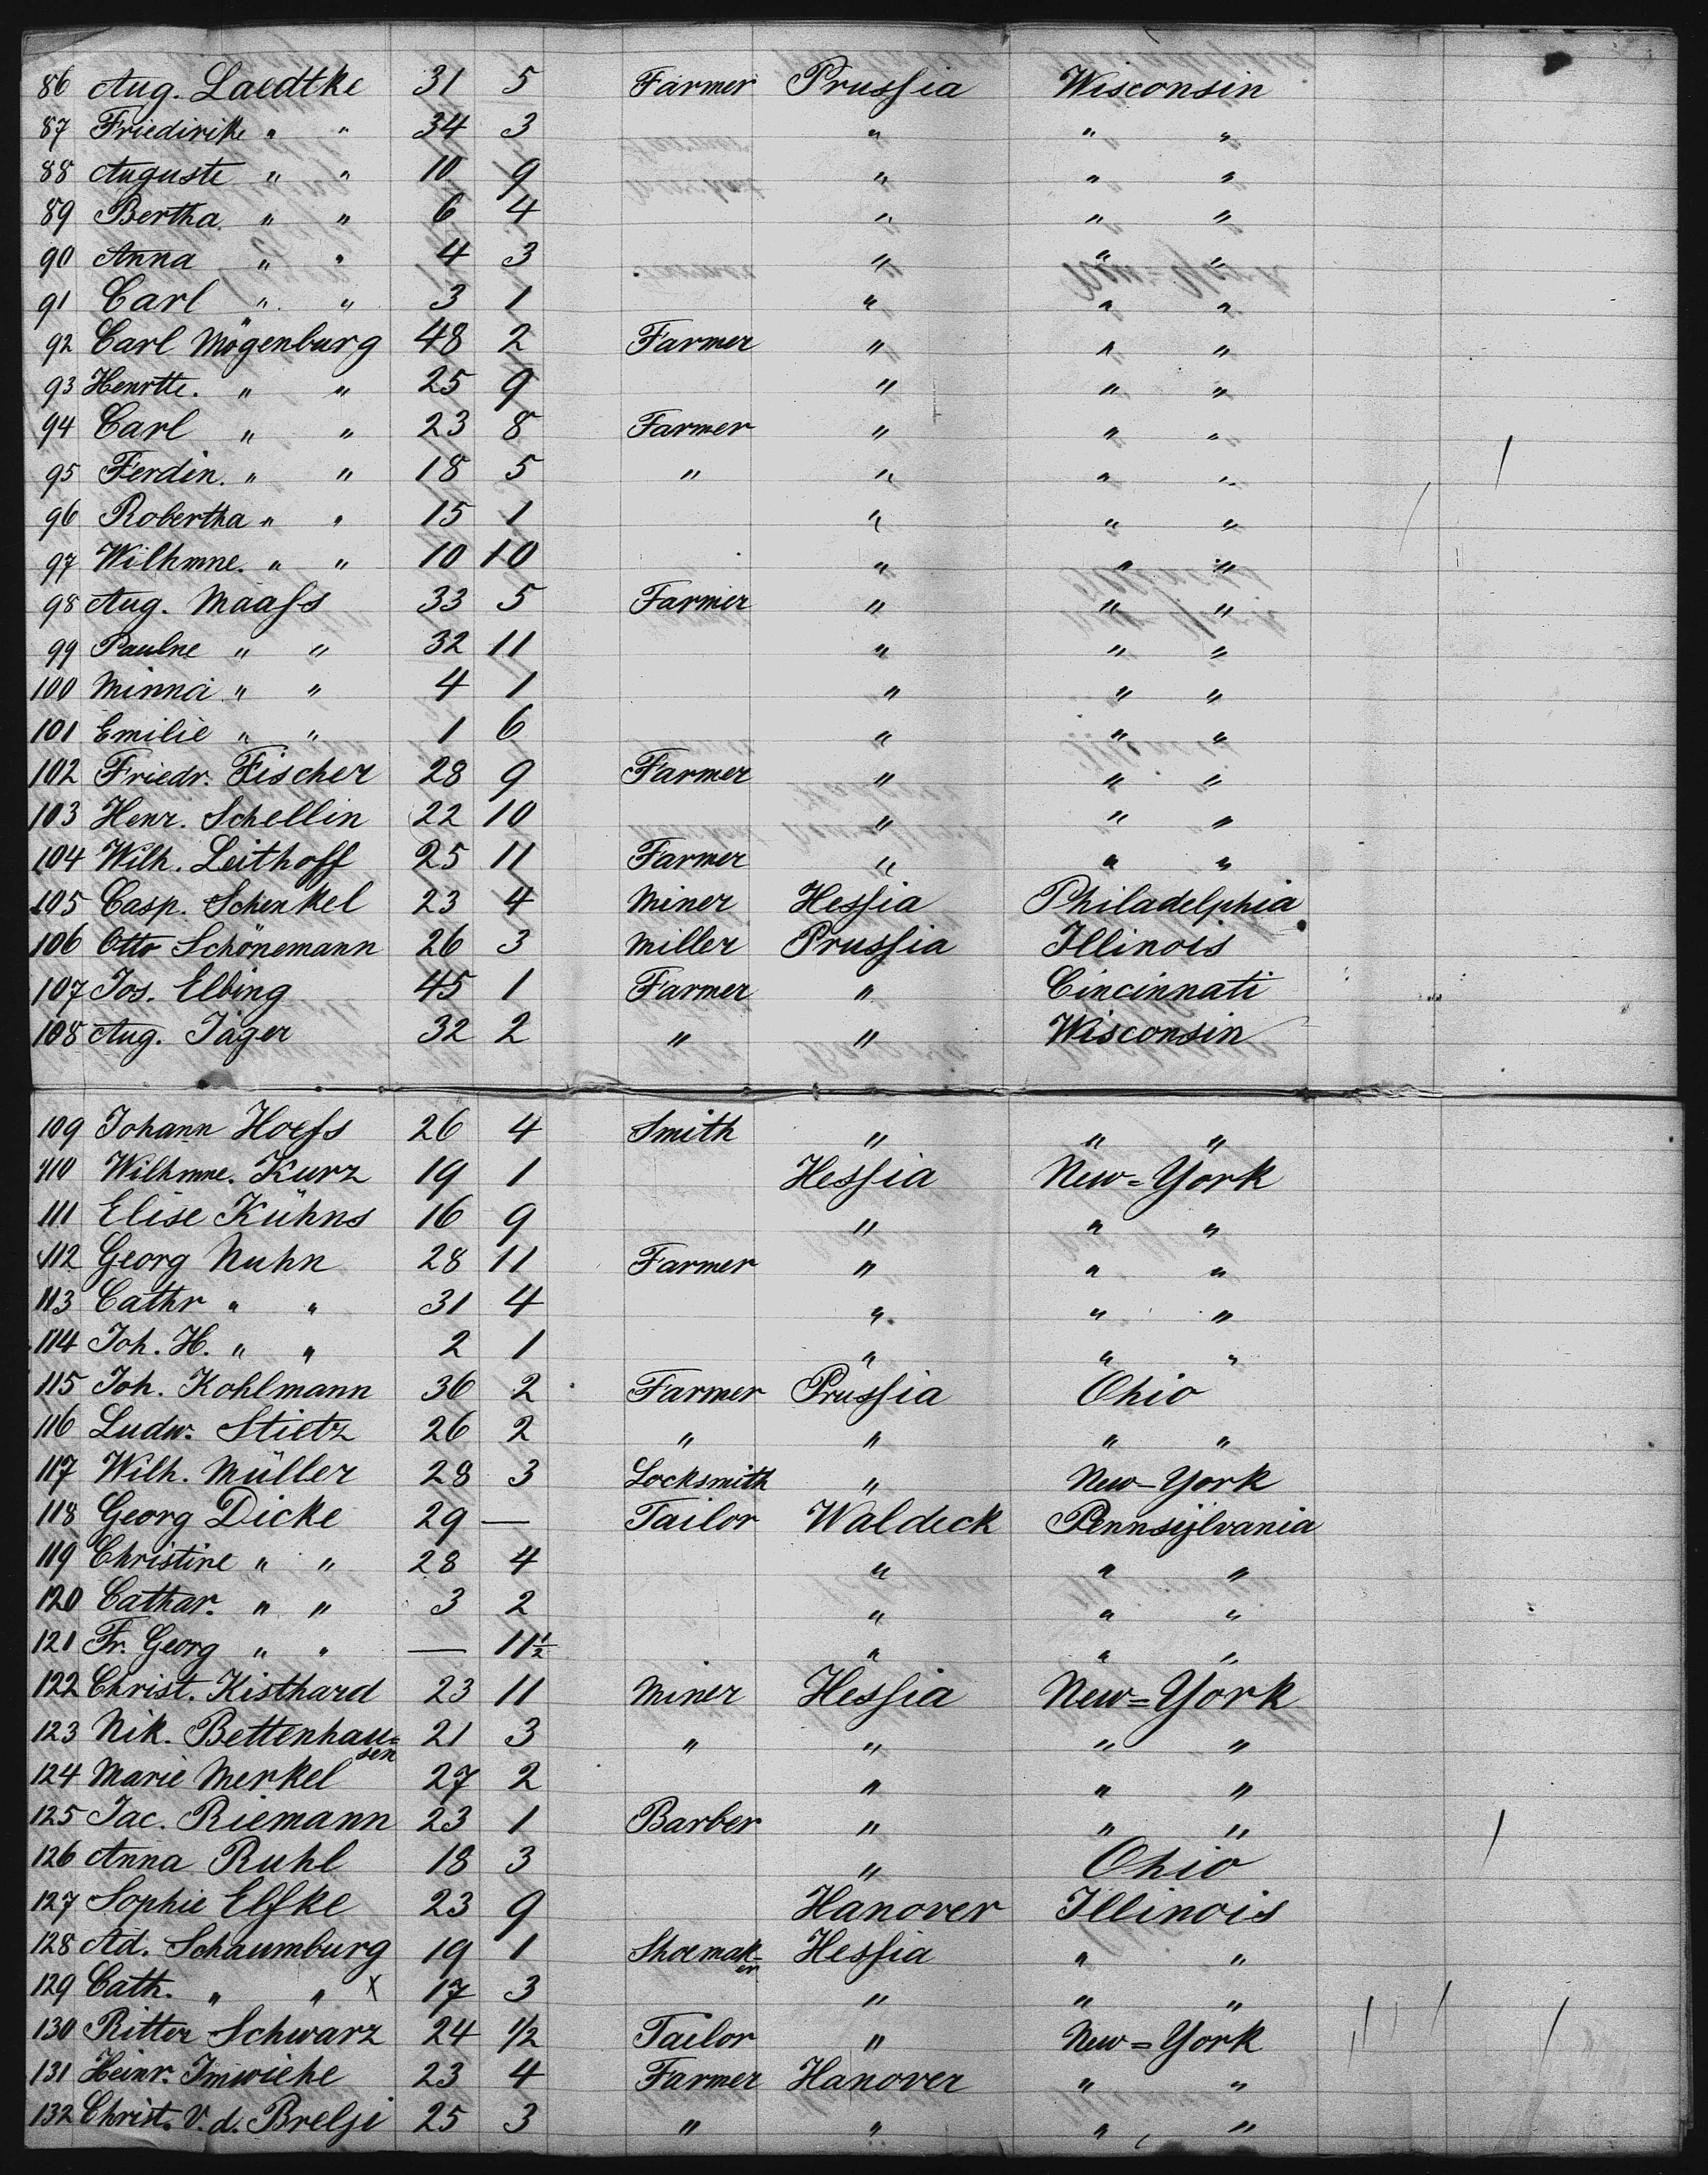 86 Aug. Laedtke 31 5 Farmer Prussia Wisconsin
87 Friedirike " " 34 3 " " "
88 Auguste " " 10 9 " " "
89 Bertha. " " 6 4 " " "
90 Anna " " 4 3 " " "
91 Carl " " 3 1 " " "
92 Carl Mögenburg 48 2 Farmer " " "
93 Henrtte. " " 25 9 " " "
94 Carl " " 23 8 Farmer " " "
95 Ferdin. " " 18 5 " " " "
96 Robertha " " 15 1 " " "
97 Wilhmne. " " 10 10 " " "
98 Aug. Maass 33 5 Farmer " " "
99 Paulne " " 32 11 " " "
100 Minna " " 4 1 " " "
101 Emilie " " 1 6 " " "
102 Friedr. Fischer 28 9 Farmer " " "
103 Henr. Schellin 22 10 " " "
104 Wilh. Leithoff 25 11 Farmer " " "
105 Casp. Schenkel 23 4 Miner Hessia Philadelphia
106 Otto Schönemann 26 3 Miller Prussia Illinois
107 Jos. Elbing 45 1 Farmer " Cincinnati
108 Aug. Jäger 32 2 " " Wisconsin
109 Johann Hoefs 26 4 Smith " " "
110 Wilhmne. Kurz 19 1 Hessia New=York
111 Elise Kühns 16 9 " " "
112 Georg Nuhn 28 11 Farmer " " "
113 Cathr " " 31 4 " " "
114 Joh. H. " " 2 1 " " "
115 Joh. Kohlmann 36 2 Farmer Prussia Ohio
116 Ludw. Stietz 26 2 " " " "
117 Wilh. Müller 28 3 Locksmith " New-York
118 Georg Dicke 29 — Tailor Waldeck Pennsÿlvania
119 Christine " " 28 4 " " "
120 Cathar. " " 3 2 " " "
121 Fr. Georg " " — 11½ " " "
122 Christ. Kisthard 23 11 Miner Hessia New=York
123 Nik. Bettenhau= 21 3 " " " "
sen
124 Marie Merkel 27 2 " " "
125 Jac. Riemann 23 1 Barber " " "
126 Anna Ruhl 18 3 " Ohio
127 Sophie Elfke 23 9 Hanover Illinois
128 Ad. Schaumburg 19 1 Shoemak- Hessia " "
er
129 Cath. " " x 17 3 " " "
130 Ritter Schwarz 24 1/2 Tailor " New=York
131 Heinr. Imwiehe 23 4 Farmer Hanover " "
132 Christ. V. d. Brelje 25 3 " " " "